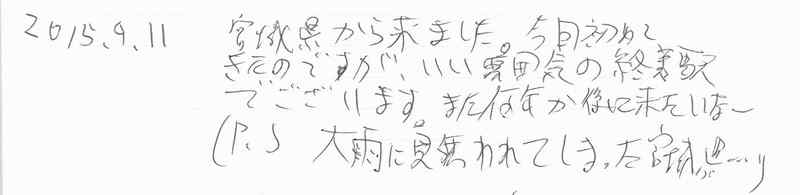 2015.9.11 宮城県から来ました。今回初めて
きたのですが、いい雰囲気の終着駅
でございます。また何年か後に来たいなー
(P.S 大雨に見舞われてしまった宮城